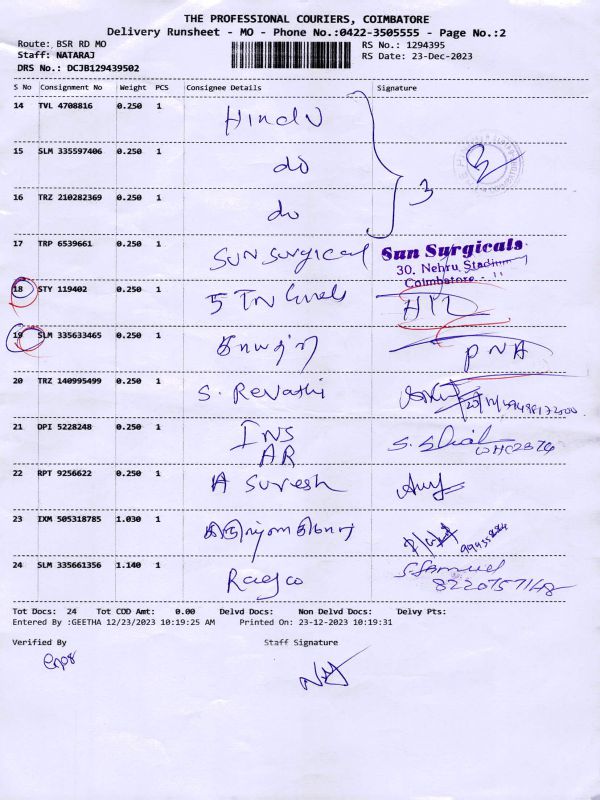 THE PROFESSIONAL COURIERS, COIMBATORE
Delivery Runsheet - MO - Phone No.:0422-3505555 - Page No.:2
Route: BSR RD MO
RS No.: 1294395
Staff: NATARAJ
RS Date: 23-Dec-2023
DRS No.: DCJB129439502
S No Consignment No Weight PCS Consignee Details Signature
14 TVL 4708816 0.250 1 Hindu
15 SLM 335597406 0.250 1 do
16 TRZ 210282369 0.250 1 do
3
17 TRP 6539661 0.250 1 Sun Surgical
Sun Surgicals
30, Nehru Stadium
Coimbatore
18 STY 119402 0.250 1 5 TN
19 SLM 335633465 0.250 1 PNA
20 TRZ 140995499 0.250 1 S. Revathi
21 DPI 5228248 0.250 1 INS
AR
22 RPT 9256622 0.250 1 A Suresh
23 IXM 505318785 1.030 1
24 SLM 335661356 1.140 1 S. Samuel
8220757148
Tot Docs: 24 Tot COD Amt: 0.00 Delvd Docs: Non Delvd Docs: Delvy Pts:
Entered By :GEETHA 12/23/2023 10:19:25 AM Printed On: 23-12-2023 10:19:31
Verified By Staff Signature